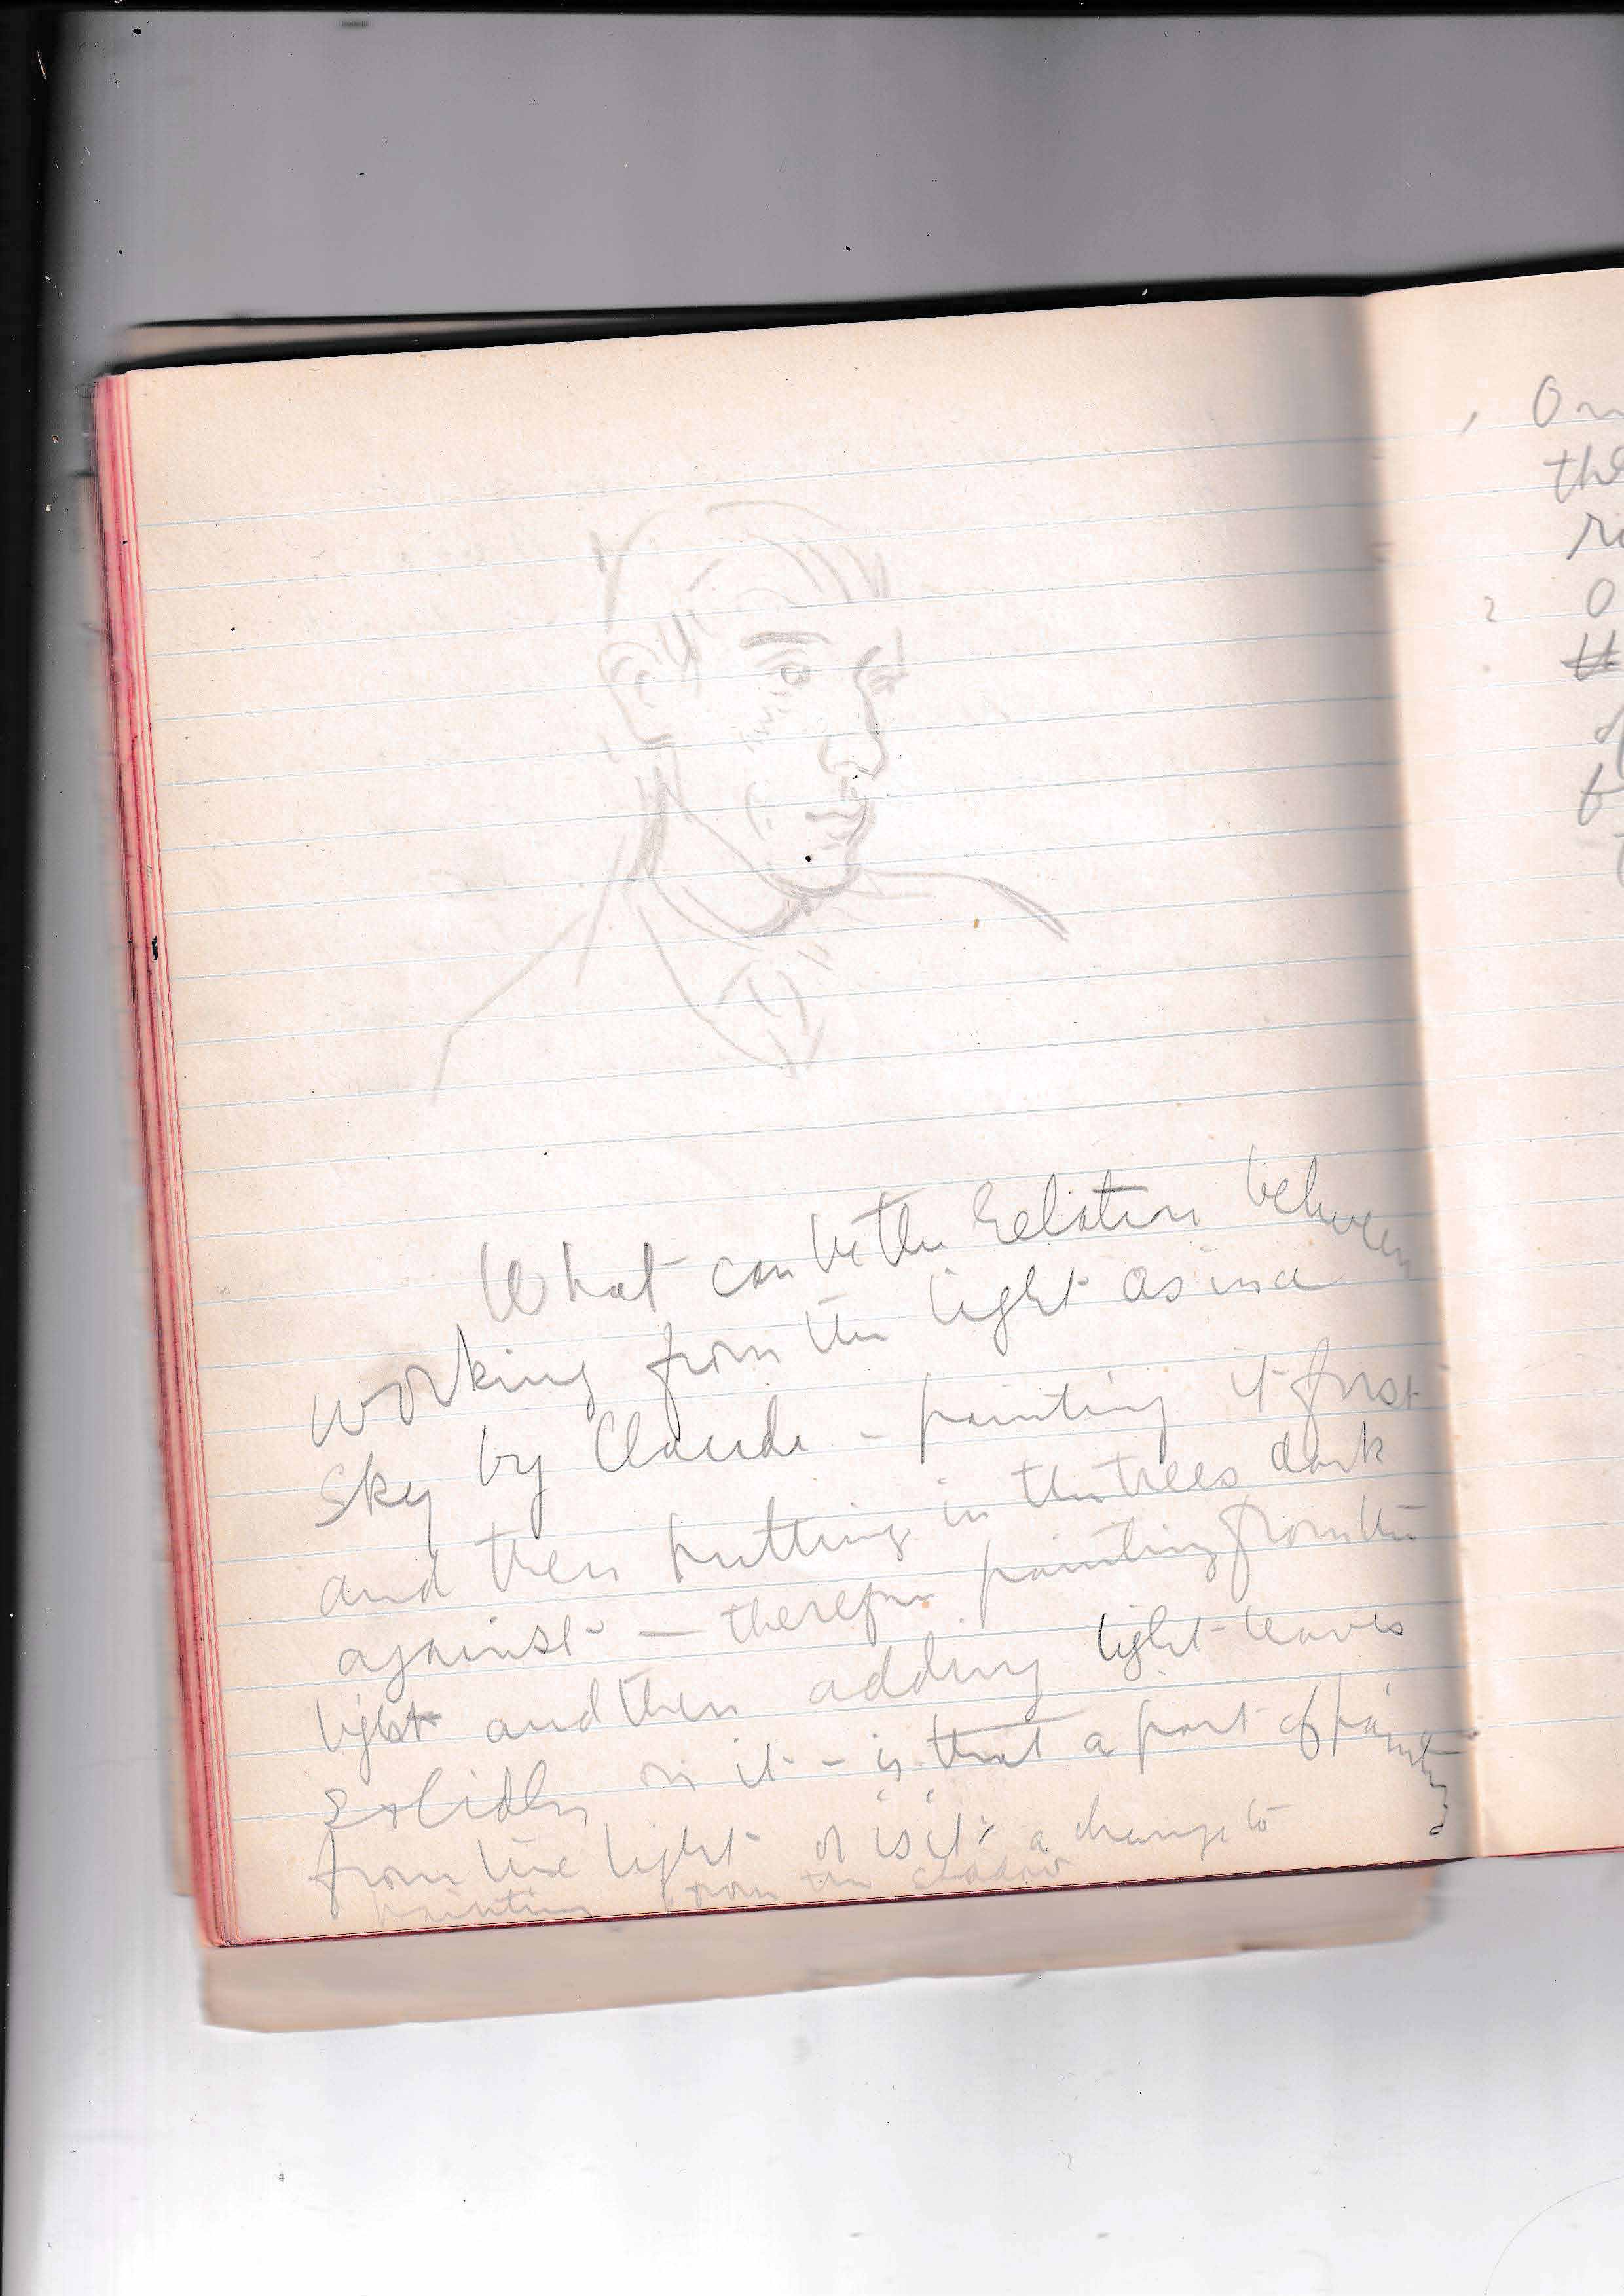 What can be the relation between
working from the light as in a
sky by Claude - painting it first
and then putting in the trees dark
against - therefore painting from the
light and then adding light leaves
solidly on it - is that a part of painting
from the light or is it a change to
painting from the shadow
On
the
O